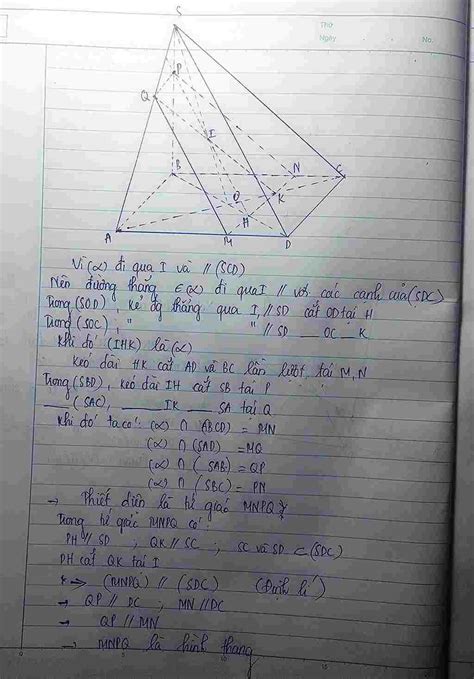 Thứ
Ngày No.
S
P
Q
I
B
N
C
O
K
H
A
M
D
Vì (α) đi qua I và // (SCD)
Nên đường thẳng ∈ (α) đi qua I // với các cạnh của (SDC)
Trong (SOD), kẻ đg thẳng qua I, // SD cắt OD tại H
Trong (SOC), " " // SD __ OC __ K
Khi đó (IHK) là (α)
Kéo dài HK cắt AD và BC lần lượt tại M, N
Trong (SBD), kéo dài IH cắt SB tại P
__ (SAC), __ IK __ SA tại Q
Khi đó ta có: (α) ∩ (ABCD) = MN
(α) ∩ (SAD) = MQ
(α) ∩ (SAB) = QP
(α) ∩ (SBC) = PN
→ Thiết diện là tứ giác MNPQ
Trong tứ giác MNPQ có
PH // SD ; QK // SC ; SC và SD ⊂ (SDC)
PH cắt QK tại I
→ (MNPQ) // (SDC) (Định lí)
→ QP // DC ; MN // DC
→ QP // MN
→ MNPQ là hình thang
5 10 15